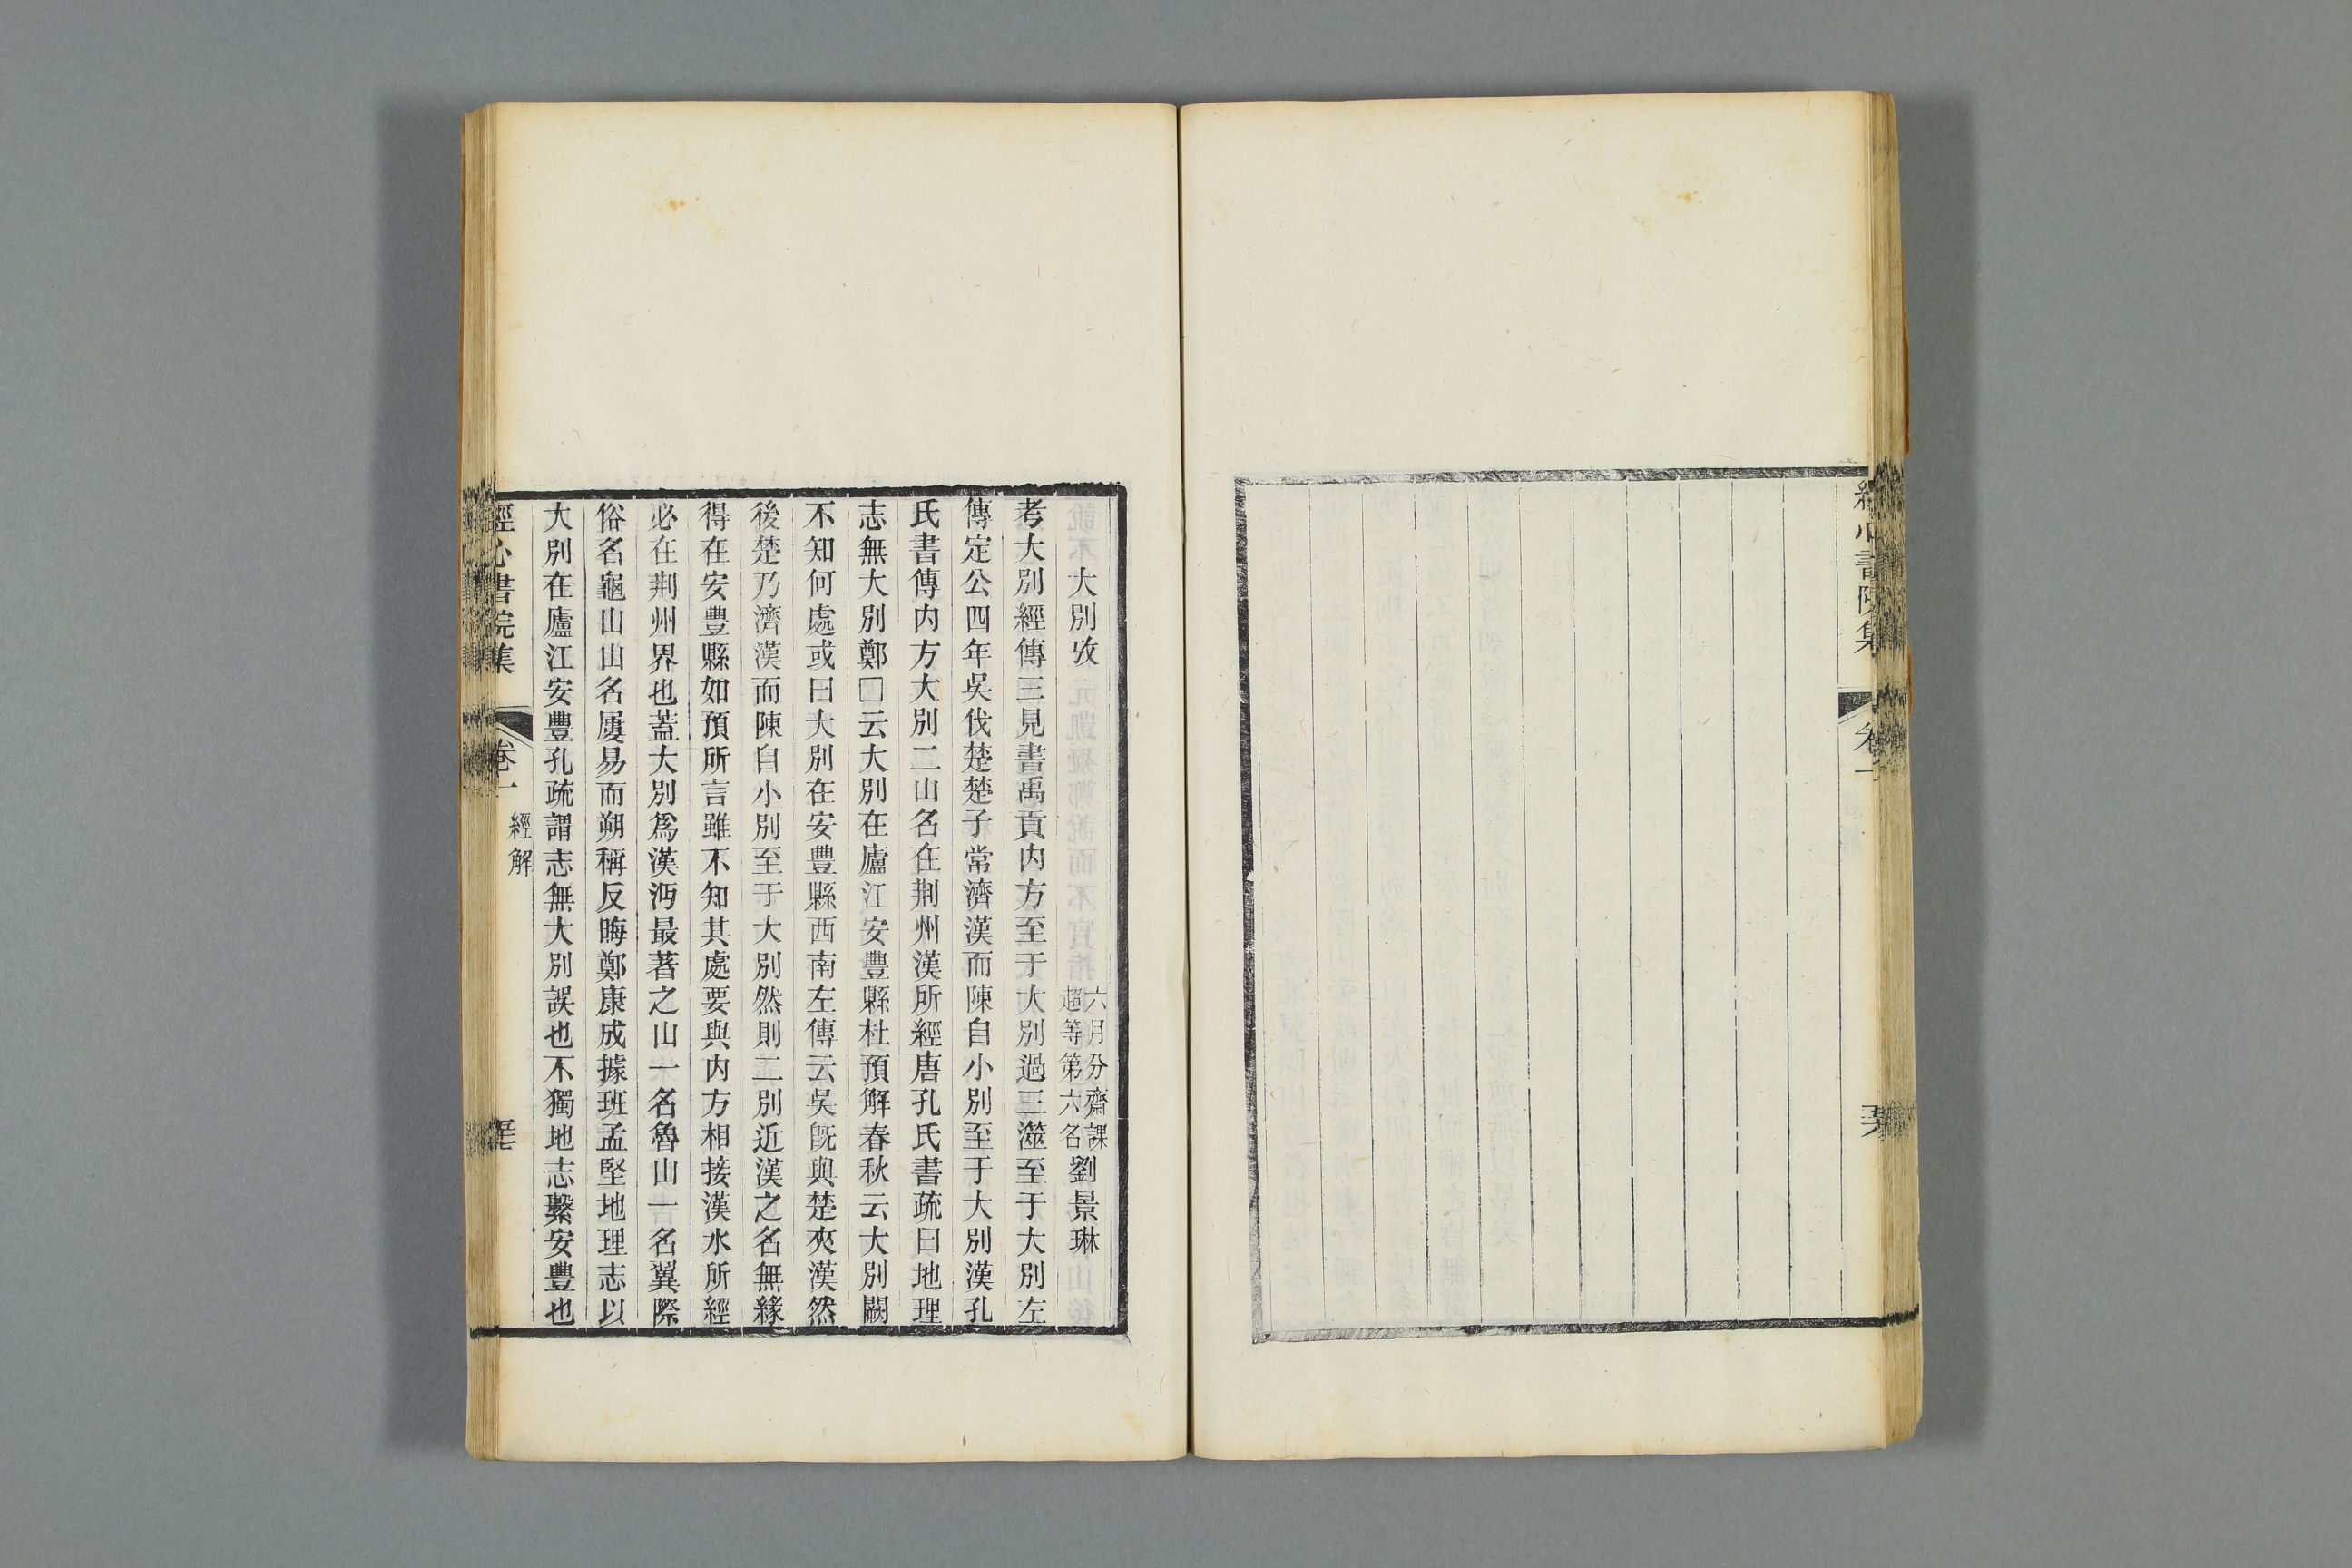 經心書院集 卷一
大別攷 六月分齋課超等第六名 劉景琳
考大別經傳三見書禹貢内方至于大別過三澨至于大別左
傳定公四年吳伐楚楚子常濟漢而陳自小別至于大別漢孔
氏書傳内方大別二山名在荆州漢所經唐孔氏書疏曰地理
志無大別鄭□云大別在廬江安豐縣杜預解春秋云大別闕
不知何處或曰大別在安豐縣西南左傳云吳旣與楚夾漢然
後楚乃濟漢而陳自小別至于大別然則二別近漢之名無緣
得在安豐縣如預所言雖不知其處要與内方相接漢水所經
必在荆州界也蓋大別爲漢沔最著之山一名魯山一名翼際
俗名龜山山名屢易而朔稱反晦鄭康成據班孟堅地理志以
大別在廬江安豐孔疏謂志無大別誤也不獨地志繫安豐也
經心書院集 卷一 經解